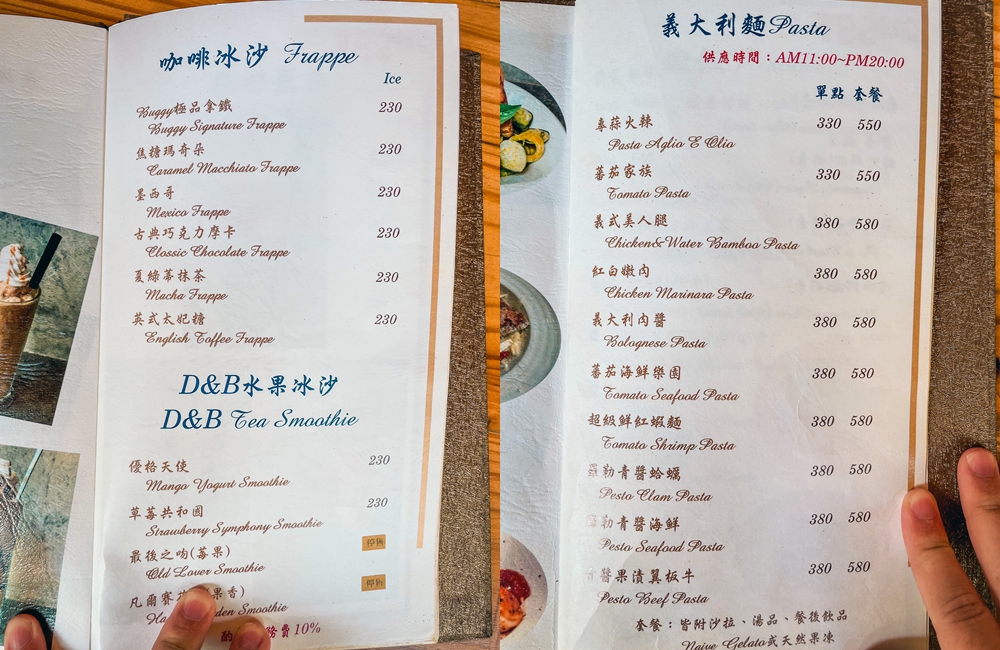 咖啡冰沙 Frappe
Ice
Buggy極品拿鐵 230
Buggy Signature Frappe
焦糖瑪奇朵 230
Caramel Macchiato Frappe
墨西哥 230
Mexico Frappe
古典巧克力摩卡 230
Clossic Chocolate Frappe
夏綠蒂抹茶 230
Macha Frappe
英式太妃糖 230
English Toffee Frappe
D&B水果冰沙
D&B Tea Smoothie
優格天使 230
Mango Yogurt Smoothie
草莓共和國 230
Strawberry Symphony Smoothie
最後之吻(莓果) 停售
Old Lover Smoothie
凡爾賽 果香) 停售
den Smoothie
酌 務費10%
義大利麵Pasta
供應時間：AM11:00~PM20:00
單點 套餐
專蒜火辣 330 550
Pasta Aglio E Olio
蕃茄家族 330 550
Tomato Pasta
義式美人腿 380 580
Chicken&Water Bamboo Pasta
紅白嫩肉 380 580
Chicken Marinara Pasta
義大利肉醬 380 580
Bolognese Pasta
蕃茄海鮮樂園 380 580
Tomato Seafood Pasta
超級鮮紅蝦麵 380 580
Tomato Shrimp Pasta
羅勒青醬蛤蠣 380 580
Pesto Clam Pasta
羅勒青醬海鮮 380 580
Pesto Seafood Pasta
青醬果漬翼板牛 380 580
Pesto Beef Pasta
套餐：皆附沙拉、湯品、餐後飲品
Naive Gelato或天然果凍